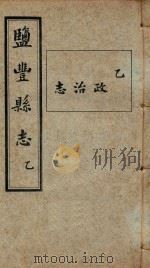 鹽豐縣志 乙
乙
政治志